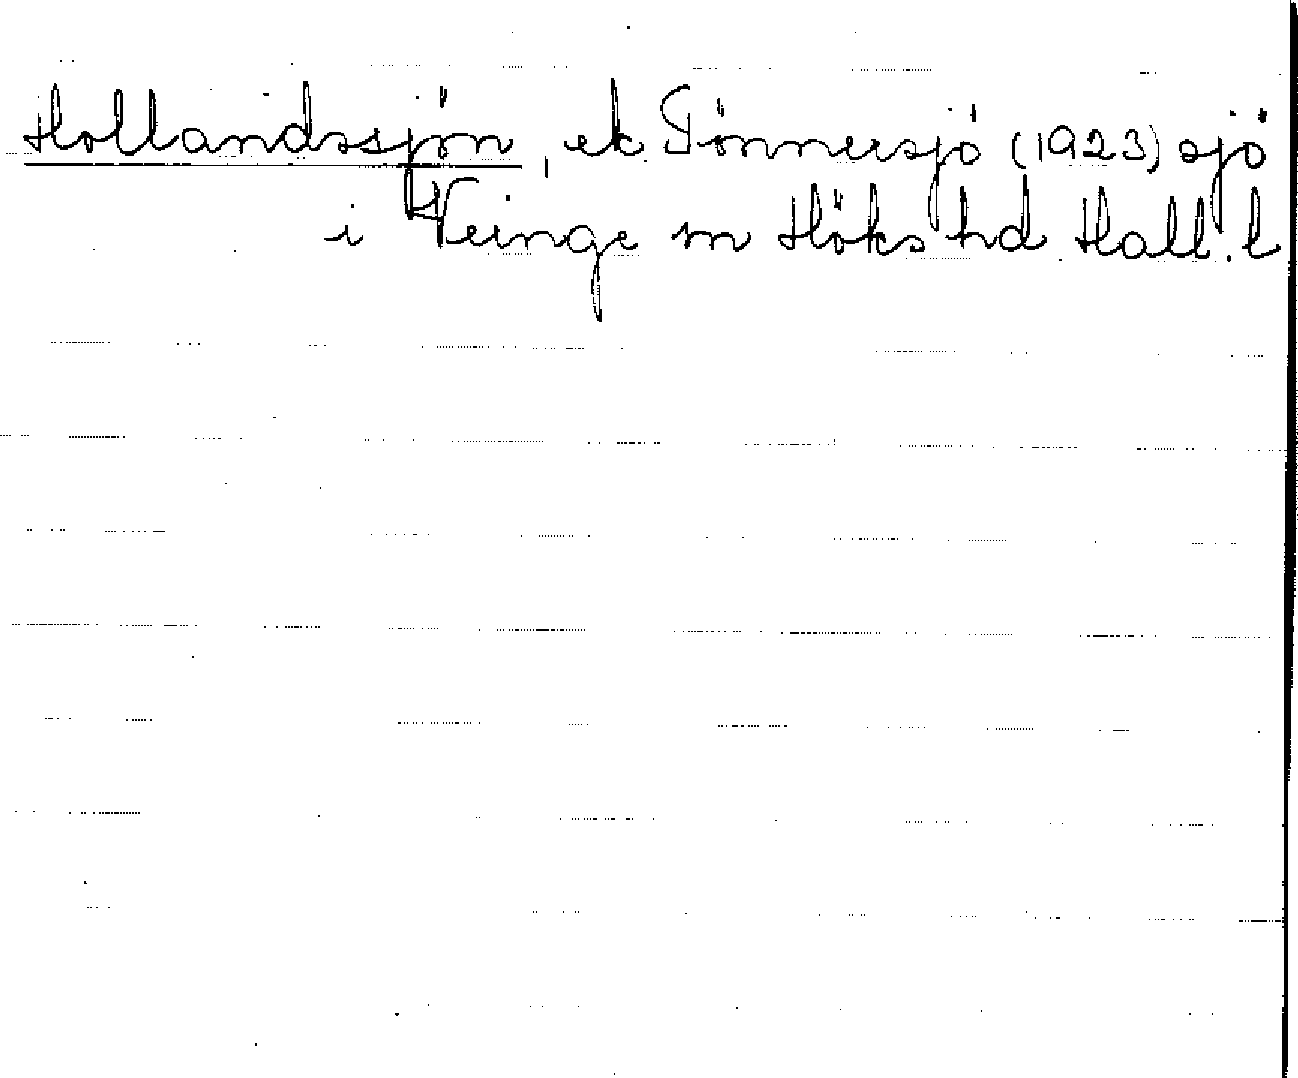 Hollandssjön, ek Tönnersjö (1923) sjö
i Veinge sn Höks hd Hall. l